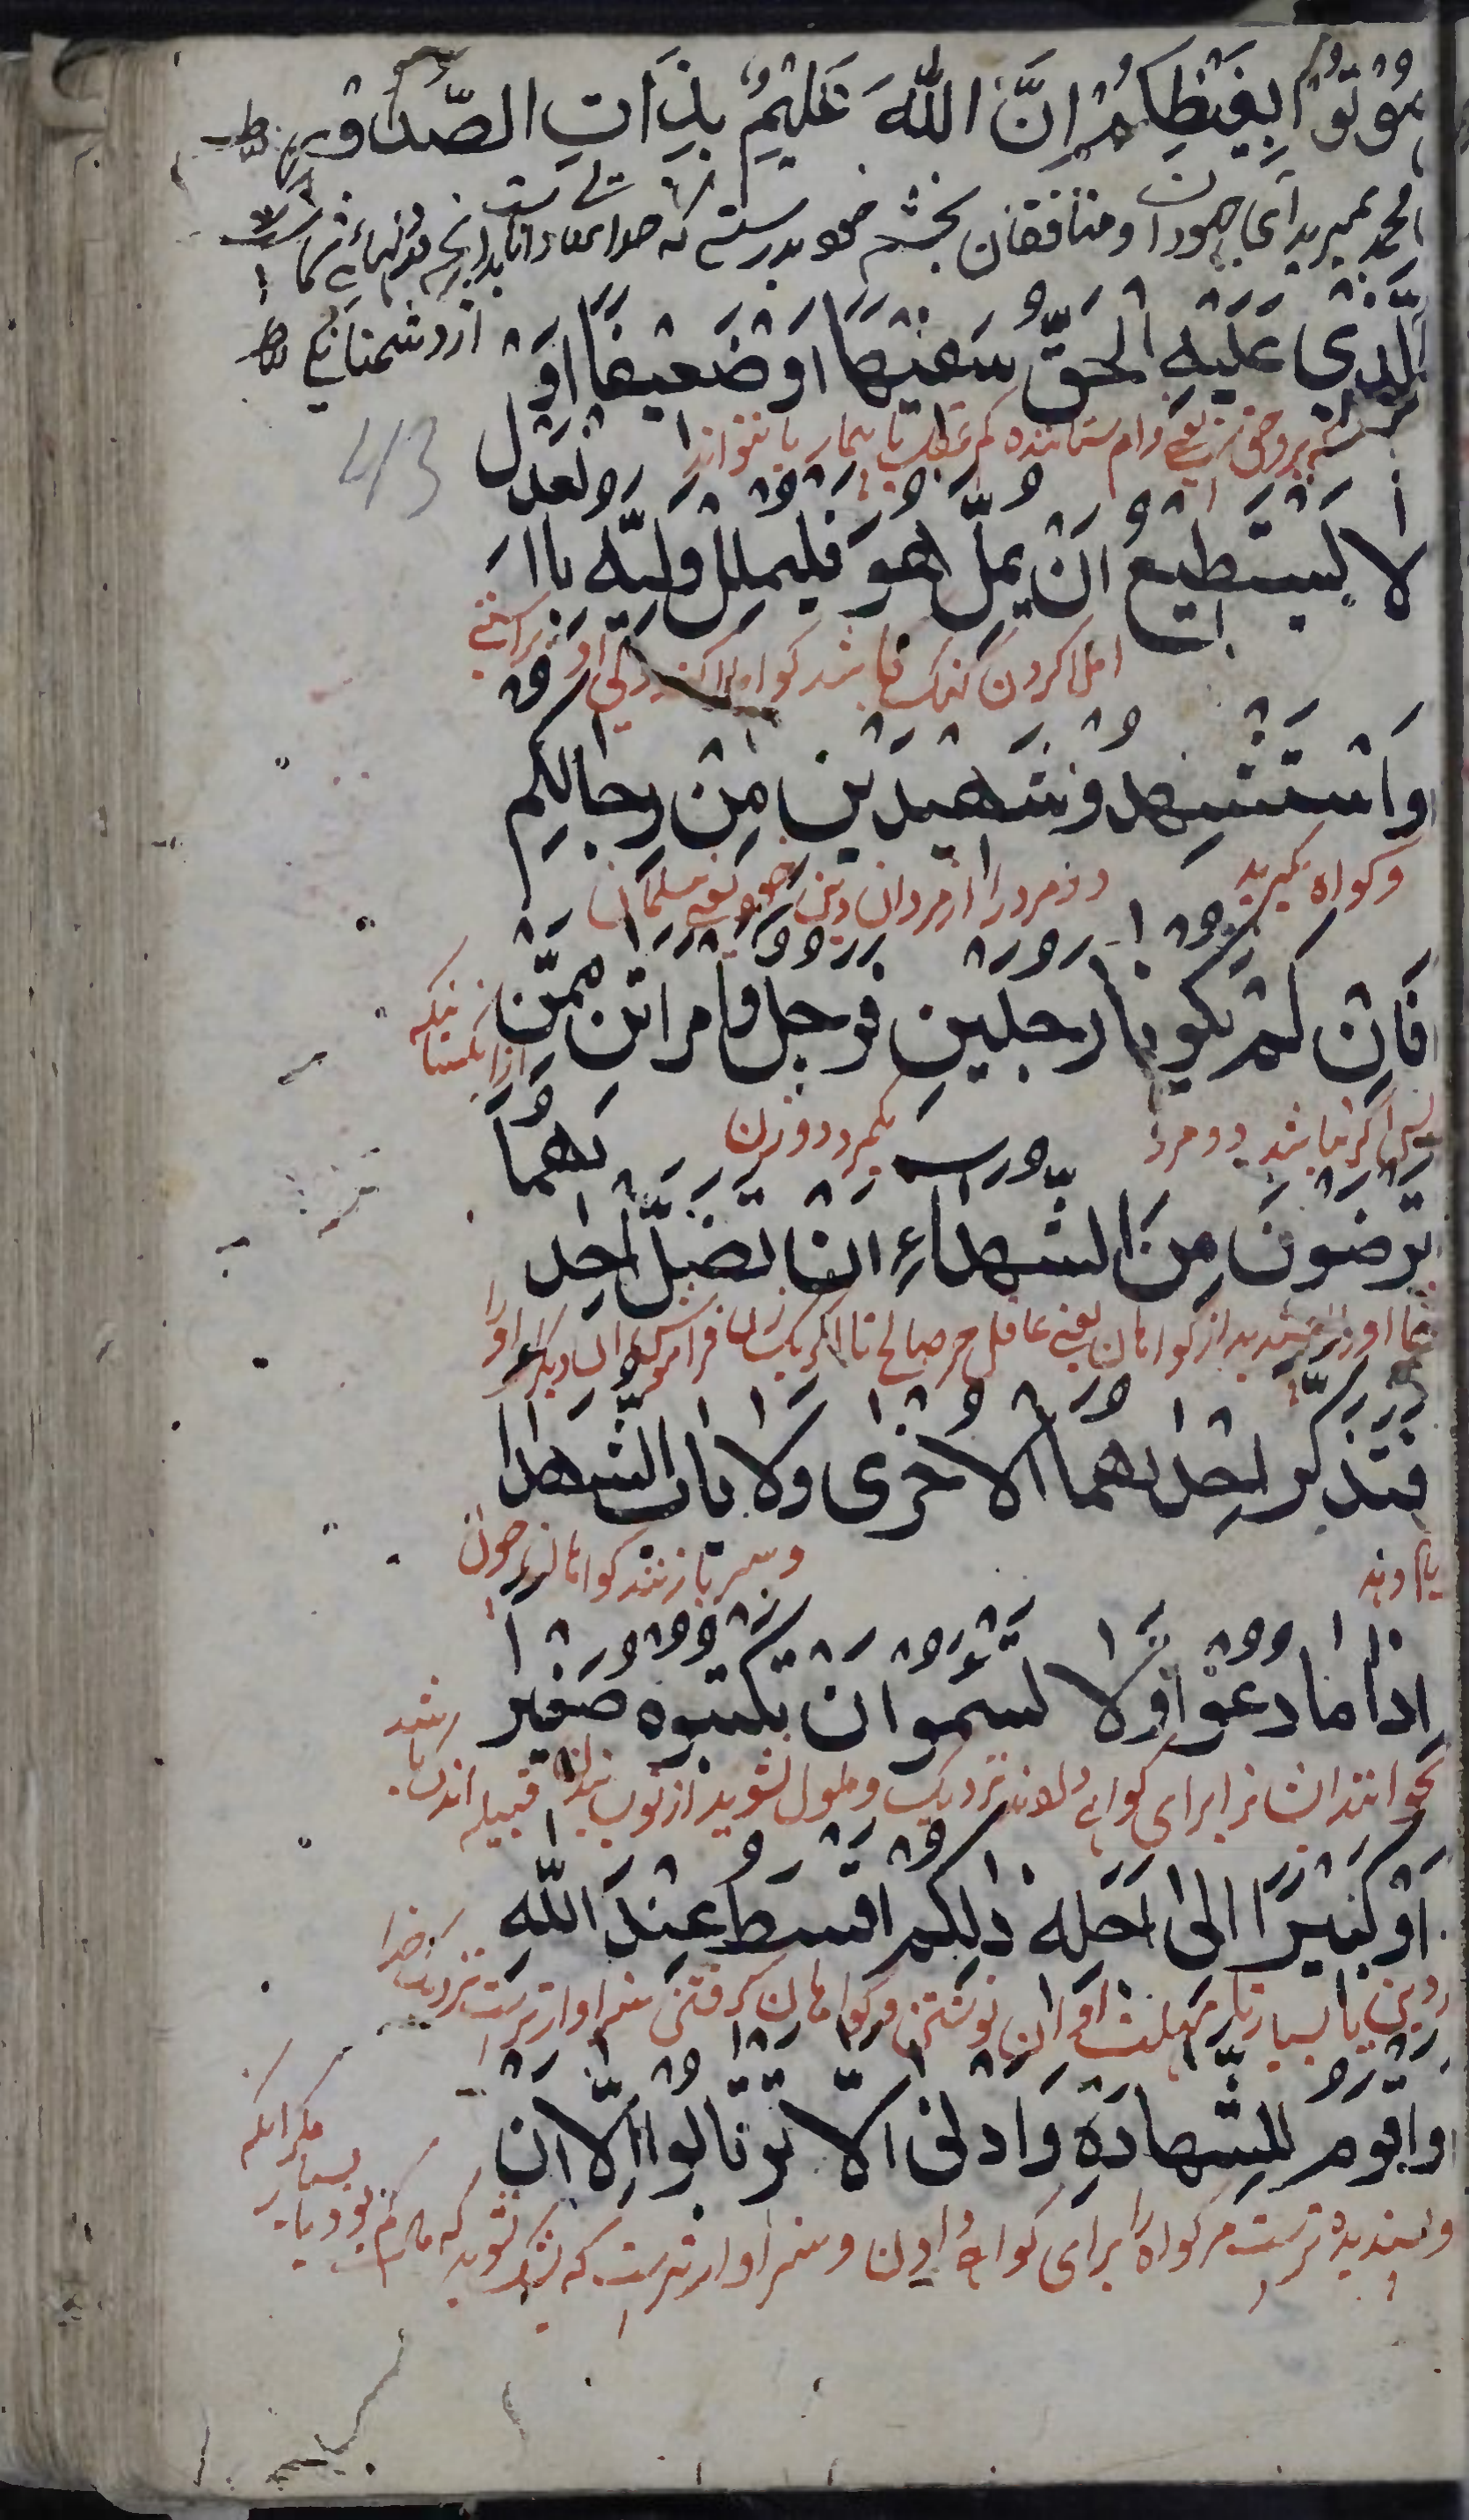 مُوْتُوْا بِغَيْظِكُمْ اِنَّ اللّٰهَ عَلِيْمٌ بِذَاتِ الصُّدُوْرِ ط
محمد بمیرید ای جهودان و منافقان بخشم خود بدرستی که خدای تعالی دانا بدانچه در دلهای شما است
از دشمنانگی ط
الَّذِيْ عَلَيْهِ الْحَقُّ سَفِيْهًا اَوْ ضَعِيْفًا اَوْ
که برو حق یعنی وام ستاننده کم عقل یا بیمار یا نتواند
413
لا يَسْتَطِيْعُ اَنْ يُمِلَّ هُوَ فَلْيُمْلِلْ وَلِيُّهُ بِالْعَدْلِ
املا کردن گنگ باشد گو املا کند ولی او براستی
وَاسْتَشْهِدُوْ شَهِيْدَيْنِ مِنْ رِجَالِكُمْ
و گواه گیرید دو مرد را از مردان دین خود یعنی مسلمانان
فَاِنْ لَمْ يَكُوْنَا رَجُلَيْنِ فَرَجُلٌ وَامْرَاَتٰنِ مِمَّنْ
پس اگر نباشد دو مرد یکمرد و دو زن
تَرْضَوْنَ مِنَ الشُّهَدَاءِ اَنْ تَضِلَّ اِحْدٰىهُمَا
از گواهان یعنی عاقل حر صالح تا اگر یک زن فراموش کند آن دیگر او را
فَتُذَكِّرَ اِحْدٰىهُمَا الْاُخْرٰى وَلَا يَابَ الشُّهَدَا
یاد دهد و سر باز نزنند گواهان چون
اِذَا مَا دُعُوْا وَلَا تَسْئَمُوْا اَنْ تَكْتُبُوْهُ صَغِيْر
بخوانند ایشان را برای گواهی و ملول نشوید از نوشتن قبیله اندک باشد
اَوْ كَبِيْرًا اِلٰى اَجَلِهٖ ذٰلِكُمْ اَقْسَطُ عِنْدَ اللّٰهِ
یا بسیار تا مهلت او آن نوشتن و گواهان گرفتن سزاوارترست نزدیک خدا
وَاَقْوَمُ لِلشَّهَادَةِ وَاَدْنٰى اَلَّا تَرْتَابُوْا اِلَّا اَنْ
و پسندیده ترست مر گواه را برای گواهی دادن و سزاوارترست که بشک نشوید که مال کم بود یا بسیار مگر آنکه